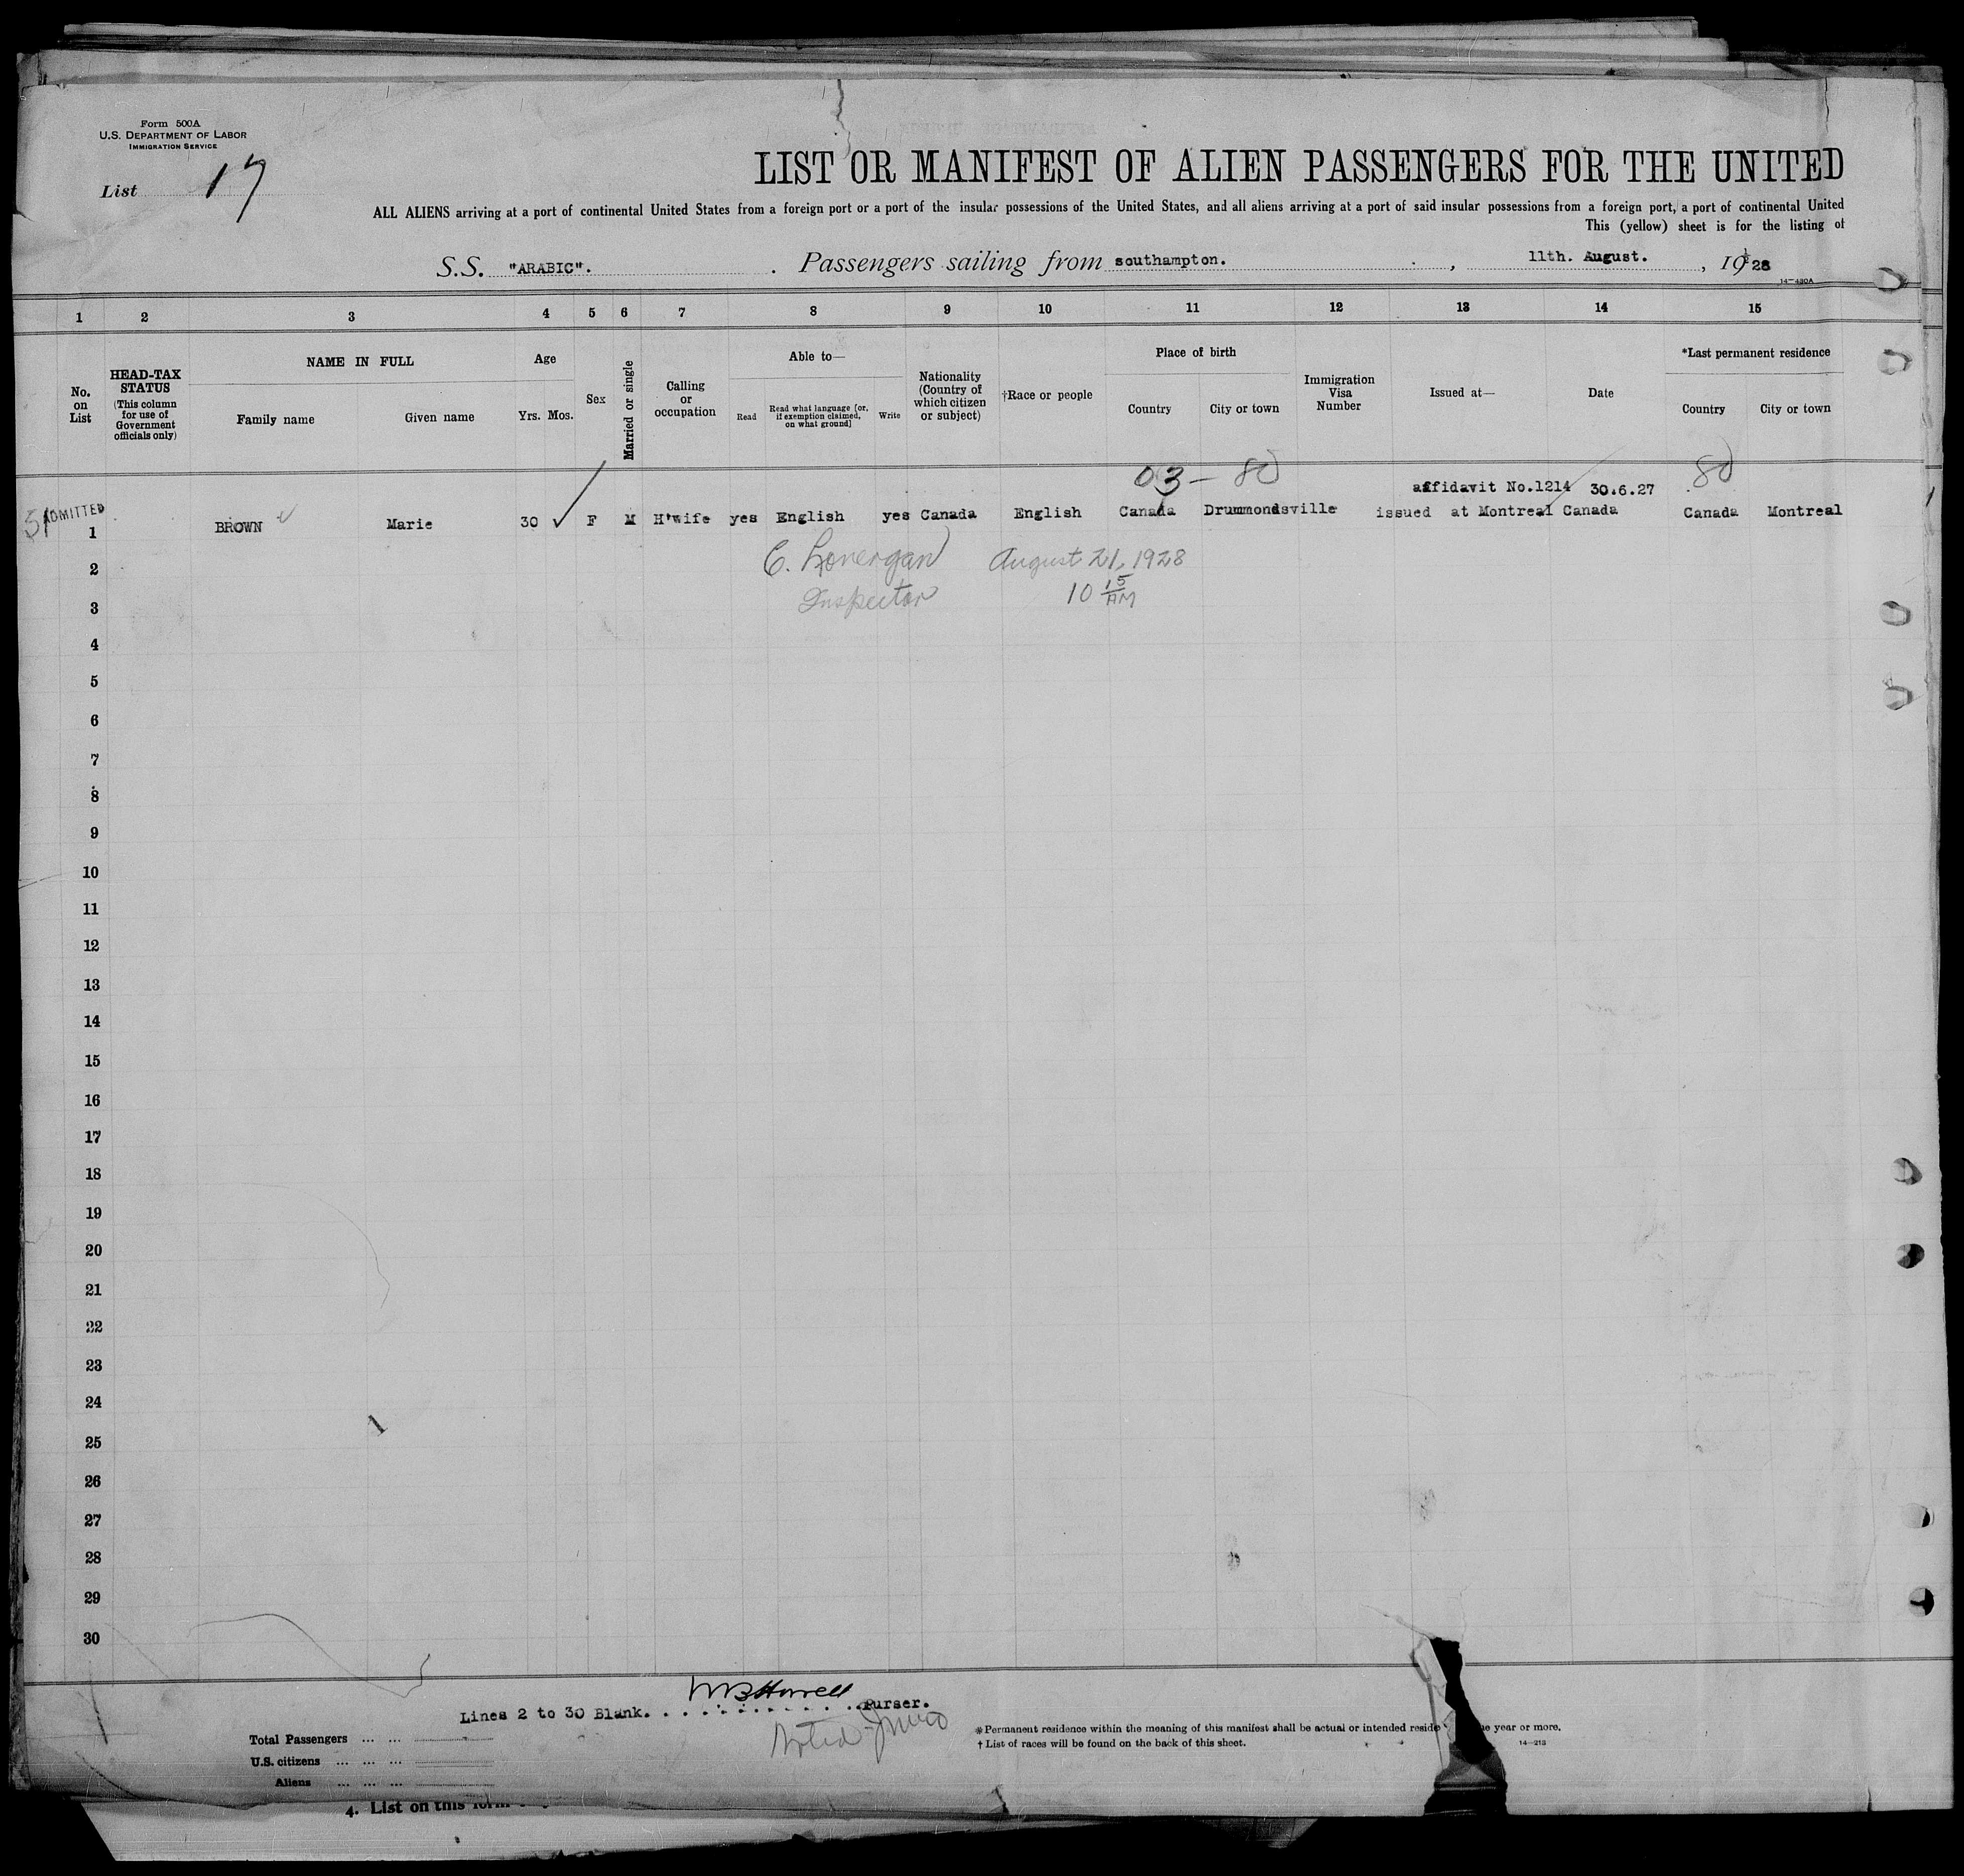 Form 500A
U.S. DEPARTMENT OF LABOR
IMMIGRATION SERVICE
List 17
LIST OR MANIFEST OF ALIEN PASSENGERS FOR THE UNITED
ALL ALIENS arriving at a port of continental United States from a foreign port or a port of the insular possessions of the United States, and all aliens arriving at a port of said insular possessions from a foreign port, a port of continental United
This (yellow) sheet is for the listing of
S.S. "ARABIC". . Passengers sailing from southampton. , 11th. August. , 1928
14—430A
1 2 3 4 5 6 7 8 9 10 11 12 13 14 15
No. on List
HEAD-TAX STATUS
(This column for use of Government officials only)
NAME IN FULL
Family name Given name
Age
Yrs. Mos.
Sex
Married or single
Calling or occupation
Able to—
Read
Read what language [or, if exemption claimed, on what ground]
Write
Nationality (Country of which citizen or subject)
†Race or people
Place of birth
Country City or town
Immigration Visa Number
Issued at—
Date
*Last permanent residence
Country City or town
03 — 80 80
affidavit No.1214 30.6.27
ADMITTED
51
1 BROWN Marie 30 ✓ F M H'wife yes English yes Canada English Canada Drummondsville issued at Montreal Canada Canada Montreal 1
2 C. Lonergan August 21, 1928
3 Inspector 10 15 AM
4
5
6
7
8
9
10
11
12
13
14
15
16
17
18
19
20
21
22
23
24
1
25
26
27
28
29
30
Lines 2 to 30 Blank. . . . . . . . . . . . Purser.
Total Passengers ... ...
U.S. citizens ... ... ...
Aliens ... ... ...
*Permanent residence within the meaning of this manifest shall be actual or intended year or more.
† List of races will be found on the back of this sheet.
14—213
4. List on this form